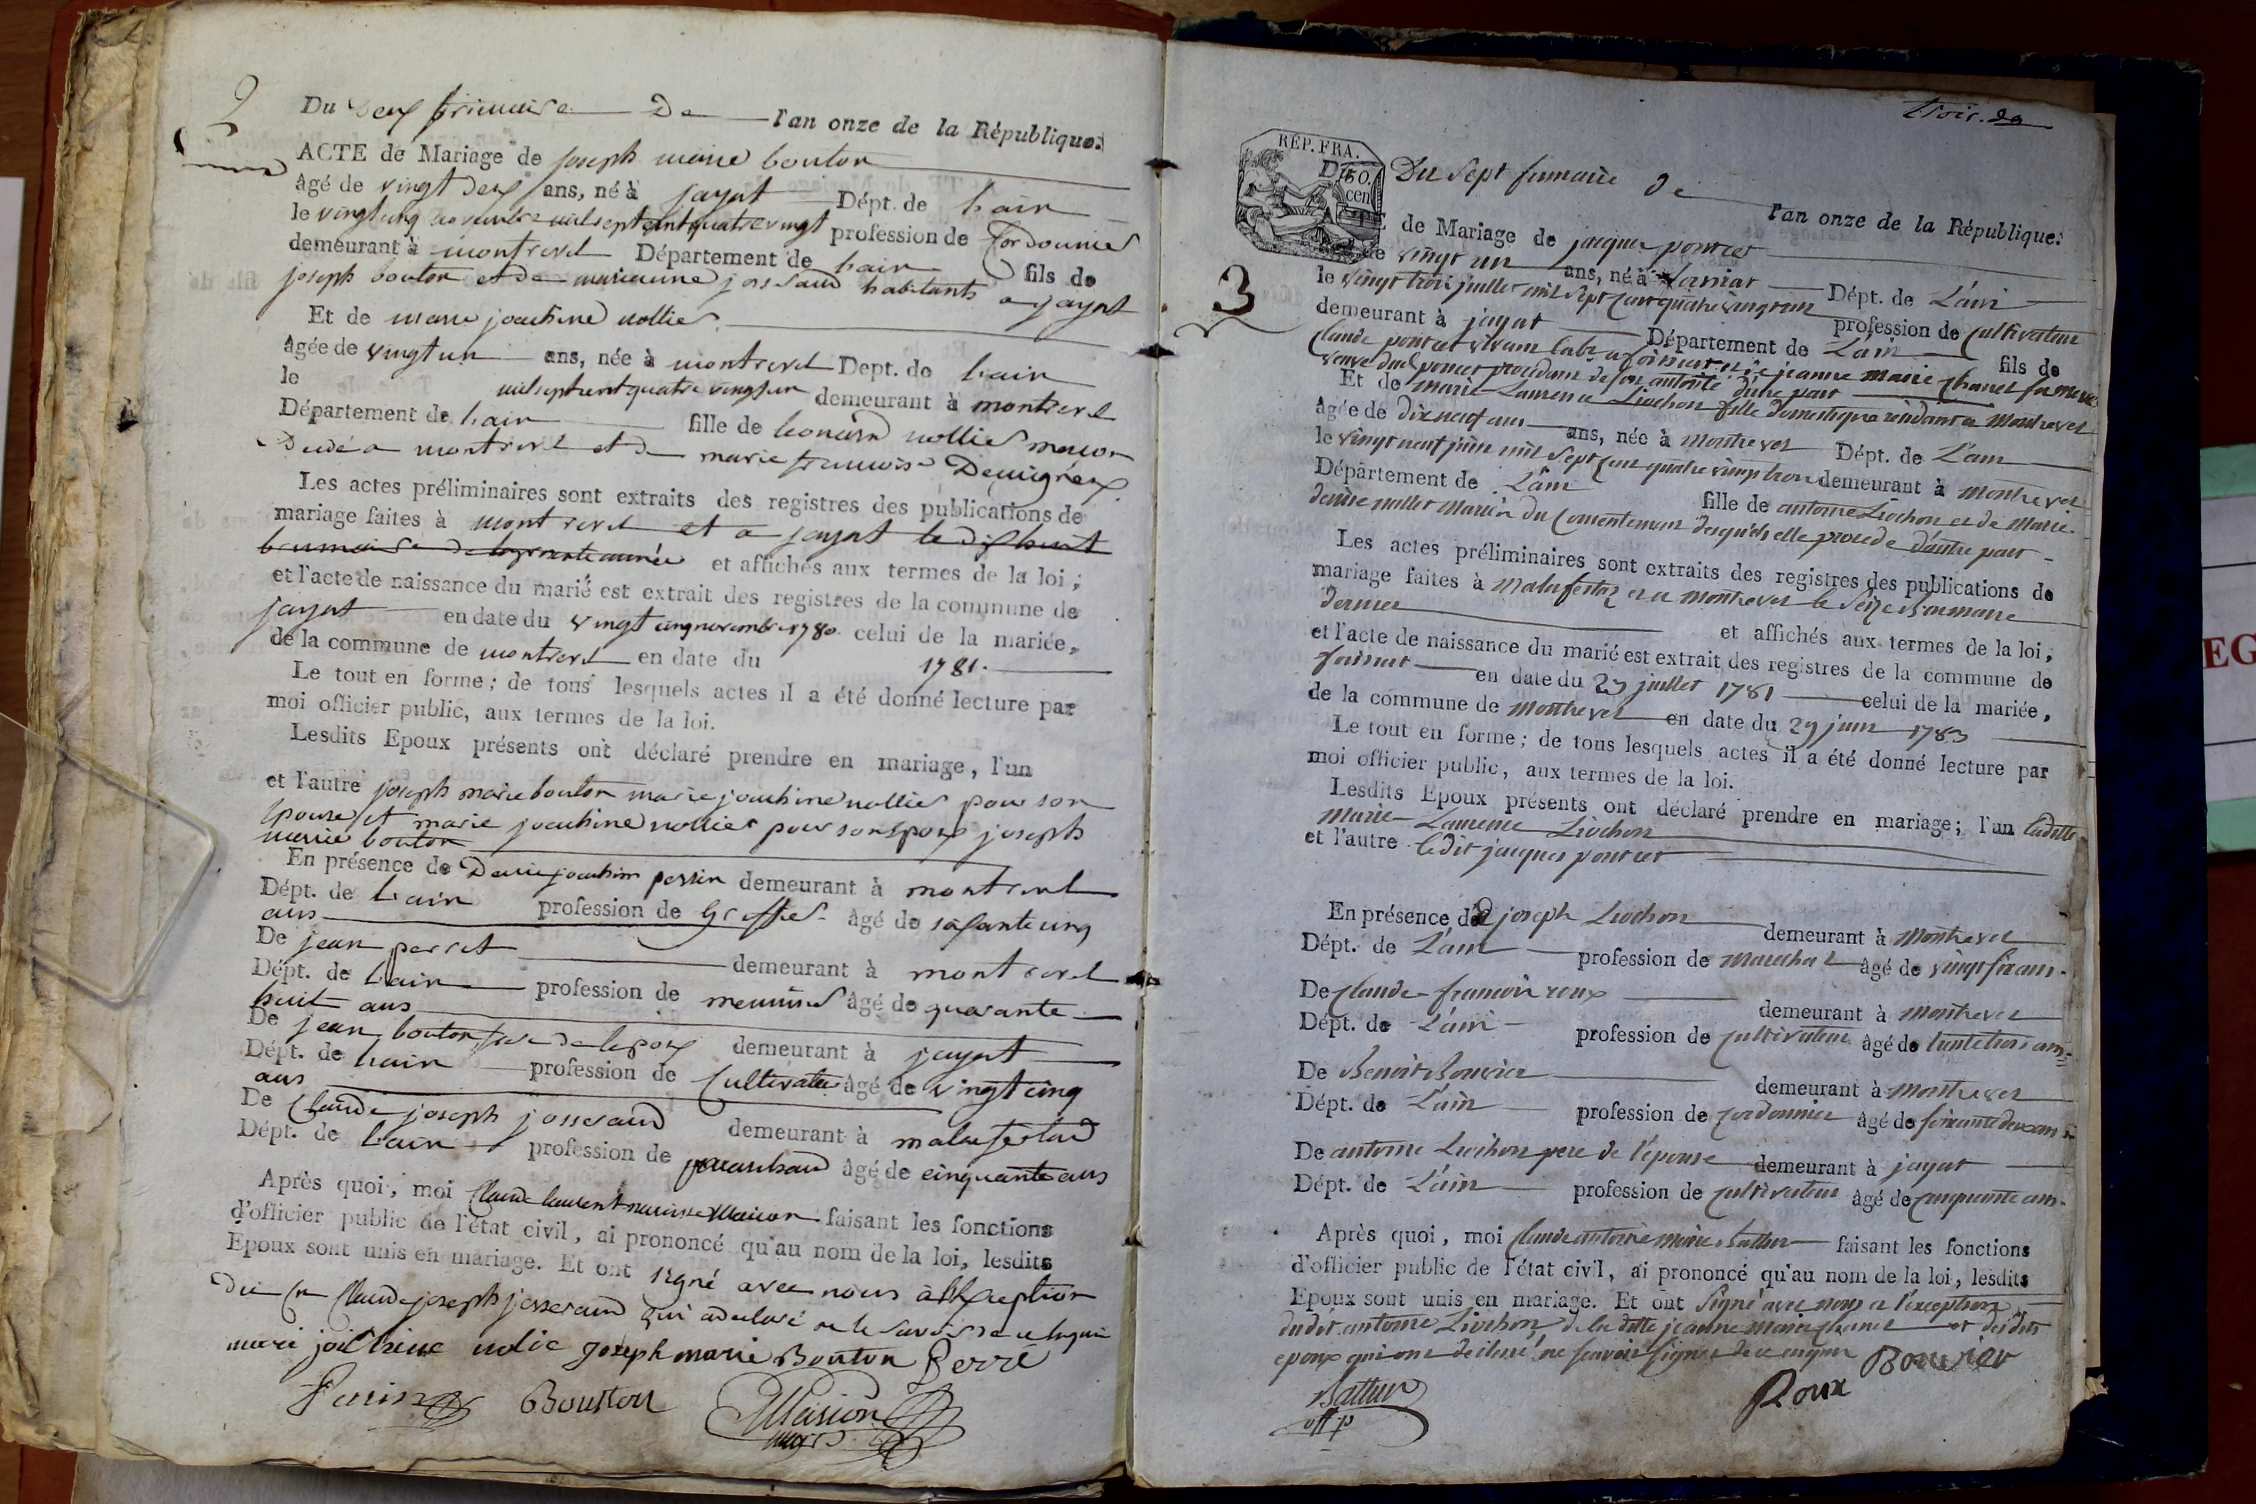 2
Du deux frimaire De l'an onze de la République.
ACTE de Mariage de joseph marie bouton
âgé de vingt deux ans, né à jayat Dépt. de lain
le vingtcinq novembre milseptcentquatrevingt profession de Cordonnier
demeurant à montrevel Département de lain fils de
joseph bouton et de marieanne josseraud habitants a jayat
Et de marie joachine nollier
âgée de vingt un ans, née à montrevel Dept. de lain
le milseptcentquatrevingtun demeurant à montrevel
Département de lain fille de leonard nollier macon
Dcédé a montrevel et de marie francoise
Les actes préliminaires sont extraits des registres des publications de
mariage faites à montrevel et a jayat le dixhuit
brumaire de la presente année et affichés aux termes de la loi ;
et l'acte de naissance du marié est extrait des registres de la commune de
jayat en date du vingt cinq novembre 1780 celui de la mariée,
de la commune de montrevel en date du 1781.
Le tout en forme ; de tous lesquels actes il a été donné lecture par
moi officier public, aux termes de la loi.
Lesdits Epoux présents ont déclaré prendre en mariage, l'un
et l'autre joseph marie bouton marie joachine nollier pour son
Epouse et marie joachine nollier pour son Epoux joseph
marie bouton
En présence de Denis joachim perrin demeurant à montrevel
Dépt. de lain profession de Greffier âgé de soixante cinq
ans
De jean perret demeurant à montrevel
Dépt. de lain profession de menuisier âgé de quarante
huit ans
De jean bouton frere de lepoux demeurant à jayat
Dépt. de lain profession de Cultivateur âgé de vingt cinq
ans
De Claude joseph josseraud demeurant à malafretaud
Dépt. de lain profession de marchand âgé de cinquante ans
Après quoi, moi Claude laurent narcisse Maison faisant les fonctions
d'officier public de l'état civil, ai prononcé qu'au nom de la loi, lesdits
Epoux sont unis en mariage. Et ont signé avec nous à l'Exception
Claude joseph josseraud qui a declaré ne le savoir de ce requis
marie joichine nolie joseph marie Bouton Perré
Perrin Bouton Maison
trois.
RÉP. FRA.
50.
cen
Du Sept frimaire de l'an onze de la République.
3
de Mariage de jacques poncet
de vingt un ans, né à Dépt. de L'ain
le vingt trois juillet mil sept cent quatre vingt un profession de cultivateur
demeurant à jayat Département de L'ain fils de
Claude poncet vivant lab. a foissiat et de jeanne marie Chanel sa mere
veuve dud. poncet procedant de son autorité d'une part
Et de marie Laurence Liochon fille domestique résidant a Montrevel
âgée de dix neuf ans ans, née à montrevel Dépt. de L'ain
le vingt neuf juin mil sept cent quatre vingt trois demeurant à montrevel
Département de L'ain fille de antoine Liochon et de Marie
denise millet Mariés du consentement desquels elle procede d'autre part
Les actes préliminaires sont extraits des registres des publications de
mariage faites à Malafretaz et a montrevel le Seize Brumaire
dernier et affichés aux termes de la loi,
et l'acte de naissance du marié est extrait des registres de la commune de
foissiat en date du 23 juillet 1781 celui de la mariée,
de la commune de montrevel en date du 29 juin 1783
Le tout en forme ; de tous lesquels actes il a été donné lecture par
moi officier public, aux termes de la loi.
Lesdits Epoux présents ont déclaré prendre en mariage ; l'un ladite
Marie Laurence Liochon
et l'autre ledit jacques poncet
En présence de joseph Liochon demeurant à Montrevel
Dépt. de L'ain profession de marechal âgé de vingt six ans
De Claude francois roux demeurant à montrevel
Dépt. de L'ain profession de cultivateur âgé de trente trois ans
De Benoit Bouvier demeurant à montrevel
Dépt. de L'ain profession de cordonnier âgé de soixante deux ans
De antoine Liochon pere de l'épouse demeurant à jayat
Dépt. de L'ain profession de cultivateur âgé de cinquante ans
Après quoi, moi Claude antoine marie faisant les fonctions
d'officier public de l'état civil, ai prononcé qu'au nom de la loi, lesdits
Epoux sont unis en mariage. Et ont signé avec nous a l'exception
dudit antoine Liochon de la ditte jeanne marie Chanel et desdits
epoux qui ont declaré ne scavoir signer de ce enquis Bouvier
Roux
off p
EG